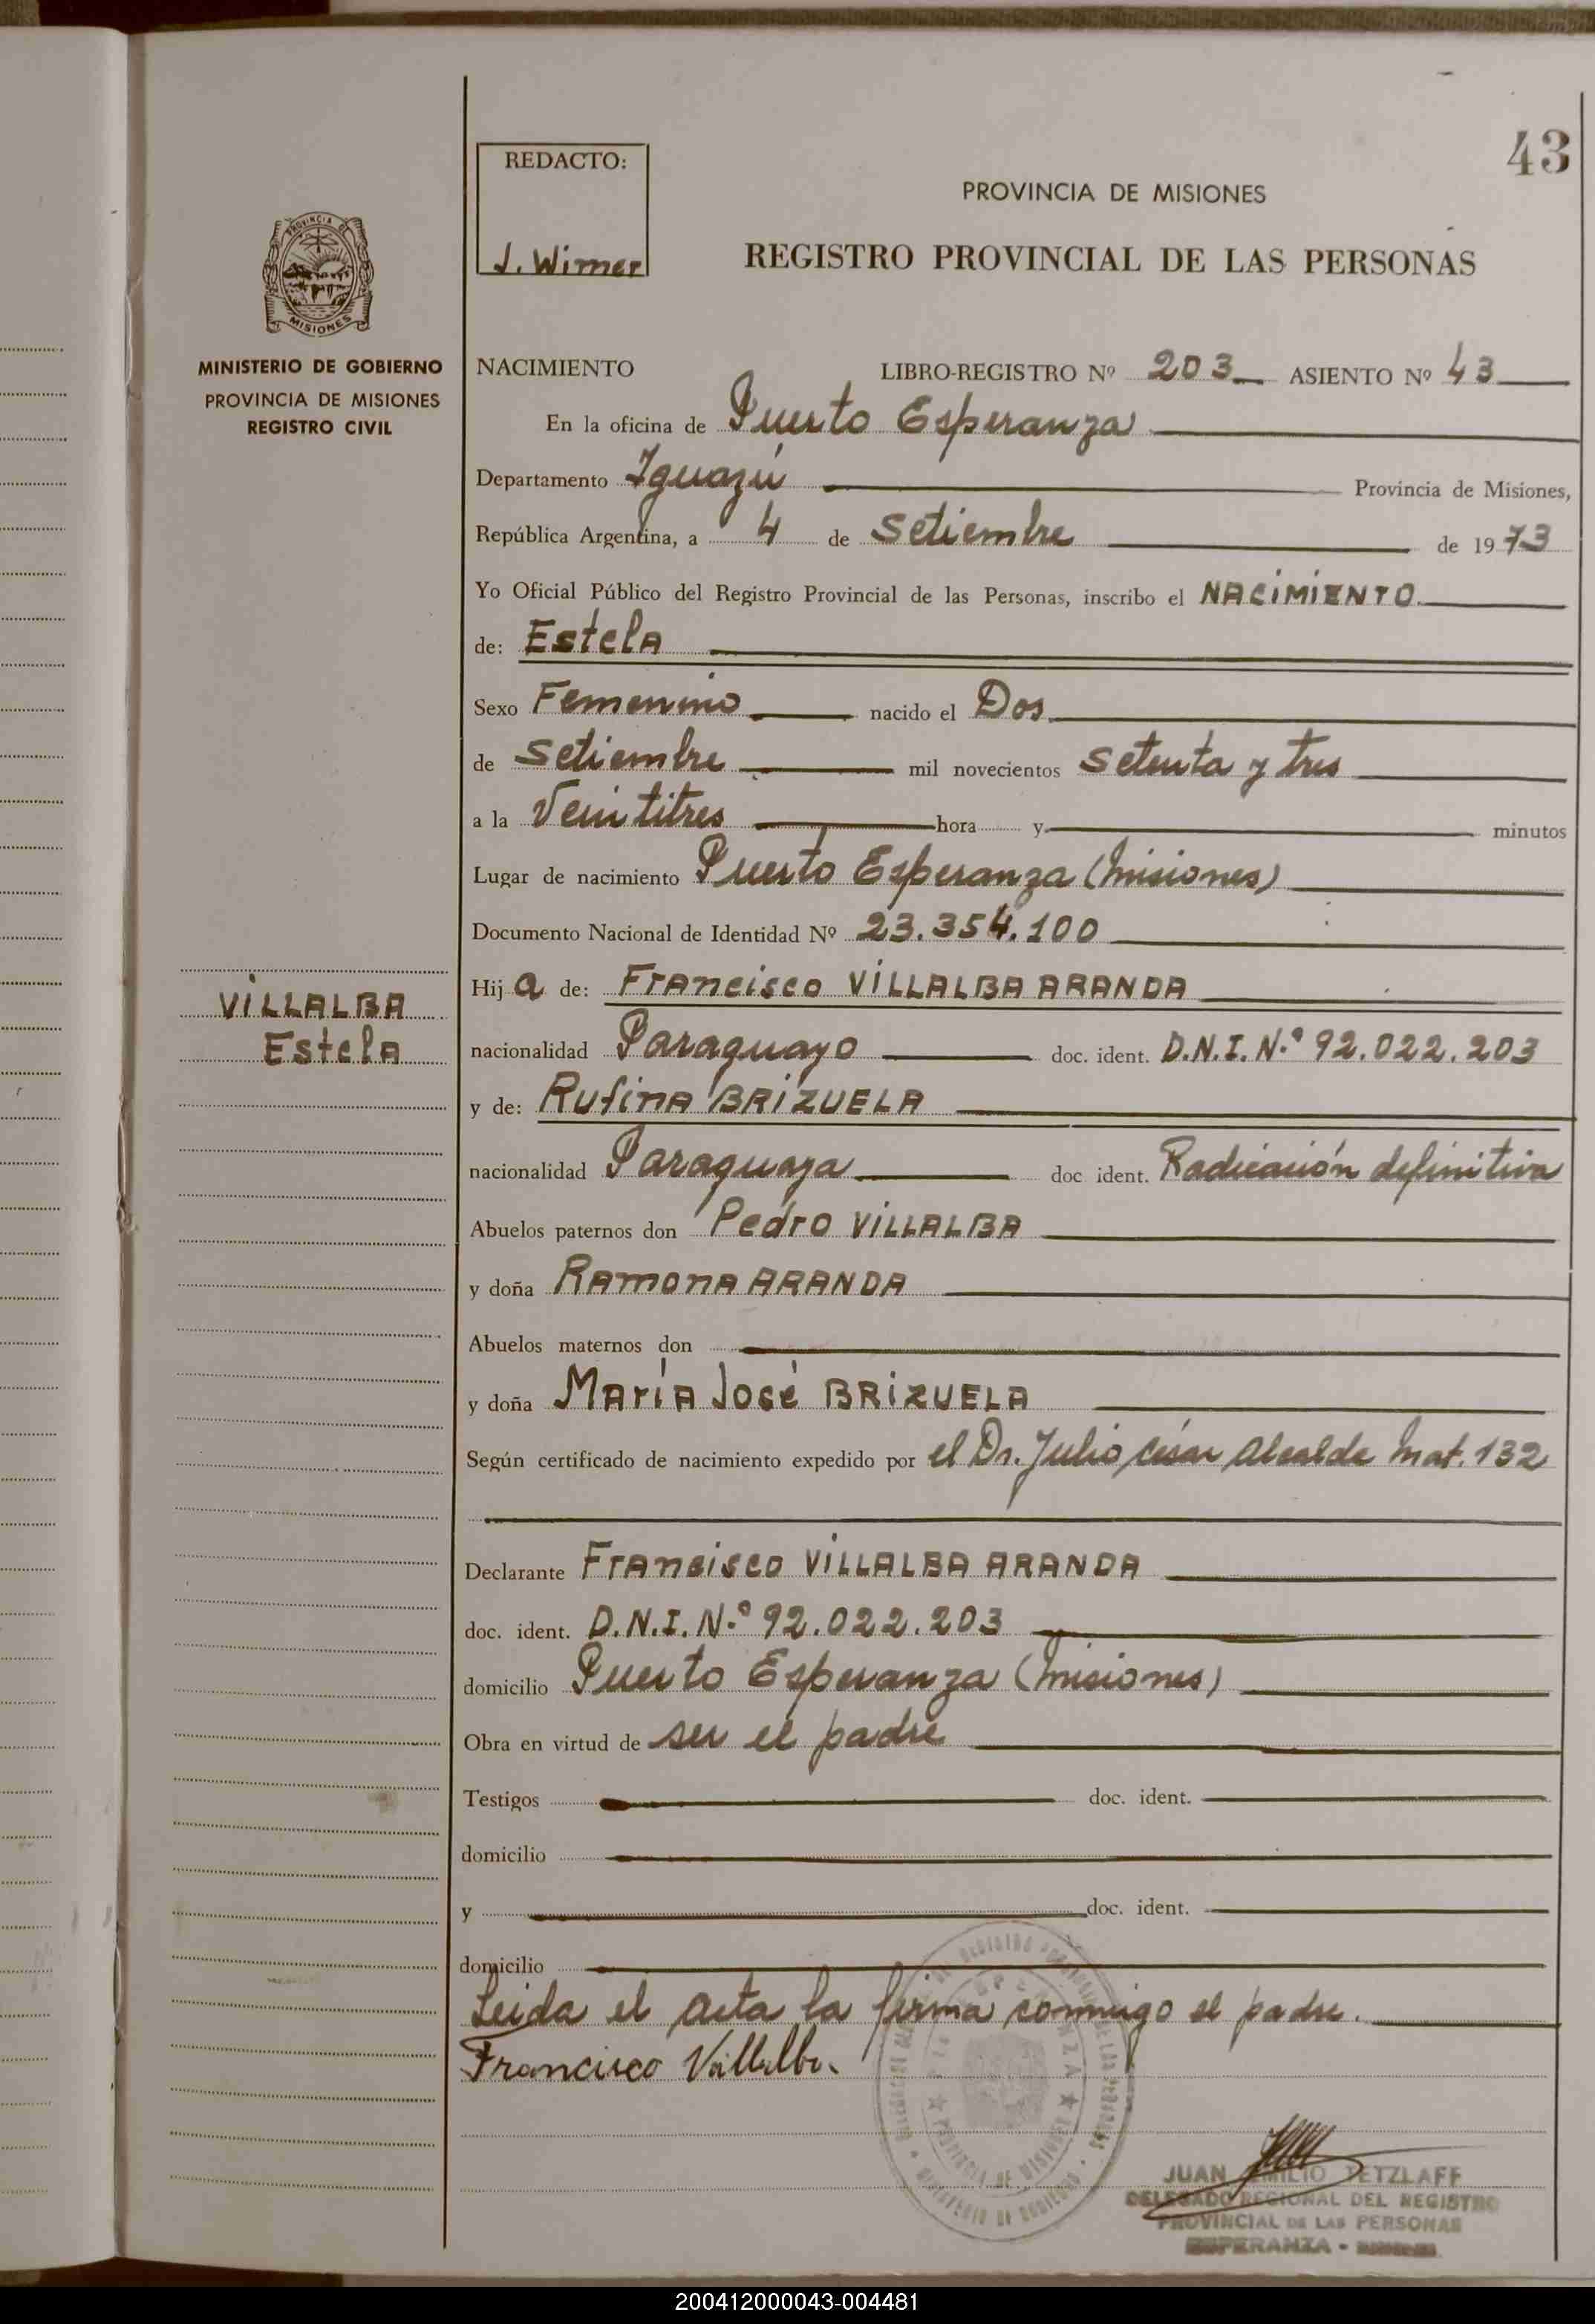 43
REDACTO:
J. Wimer
PROVINCIA DE MISIONES
REGISTRO PROVINCIAL DE LAS PERSONAS
PROVINCIA D
MISIONES
MINISTERIO DE GOBIERNO
PROVINCIA DE MISIONES
REGISTRO CIVIL
NACIMIENTO LIBRO-REGISTRO Nº 203 ASIENTO Nº 43
En la oficina de Puerto Esperanza
Departamento Iguazú Provincia de Misiones,
República Argentina, a 4 de Setiembre de 1973
Yo Oficial Público del Registro Provincial de las Personas, inscribo el NACIMIENTO
de: Estela
Sexo Femenino nacido el Dos
de Setiembre mil novecientos setenta y tres
a la Veintitres hora y minutos
Lugar de nacimiento Puerto Esperanza (Misiones)
Documento Nacional de Identidad Nº 23.354.100
Hij a de: Francisco VILLALBA ARANDA
VILLALBA
Estela
nacionalidad Paraguayo doc. ident. D.N.I. N.º 92.022.203
y de: Rufina BRIZUELA
nacionalidad Paraguaya doc ident. Radicación definitiva
Abuelos paternos don Pedro VILLALBA
y doña Ramona ARANDA
Abuelos maternos don
y doña María José BRIZUELA
Según certificado de nacimiento expedido por el Dr. Julio César Alcalde Mat. 132
Declarante Francisco VILLALBA ARANDA
doc. ident. D.N.I. N.º 92.022.203
domicilio Puerto Esperanza (Misiones)
Obra en virtud de ser el padre
Testigos doc. ident.
domicilio
y doc. ident.
domicilio
Leida el acta la firma conmigo el padre.
Francisco Villalba.
PROVINCIA DE MISIONES
MINISTERIO DE GOBIERNO
JUAN EMILIO PETZLAFF
DELEGADO REGIONAL DEL REGISTRO
PROVINCIAL DE LAS PERSONAS
ESPERANZA -
200412000043-004481